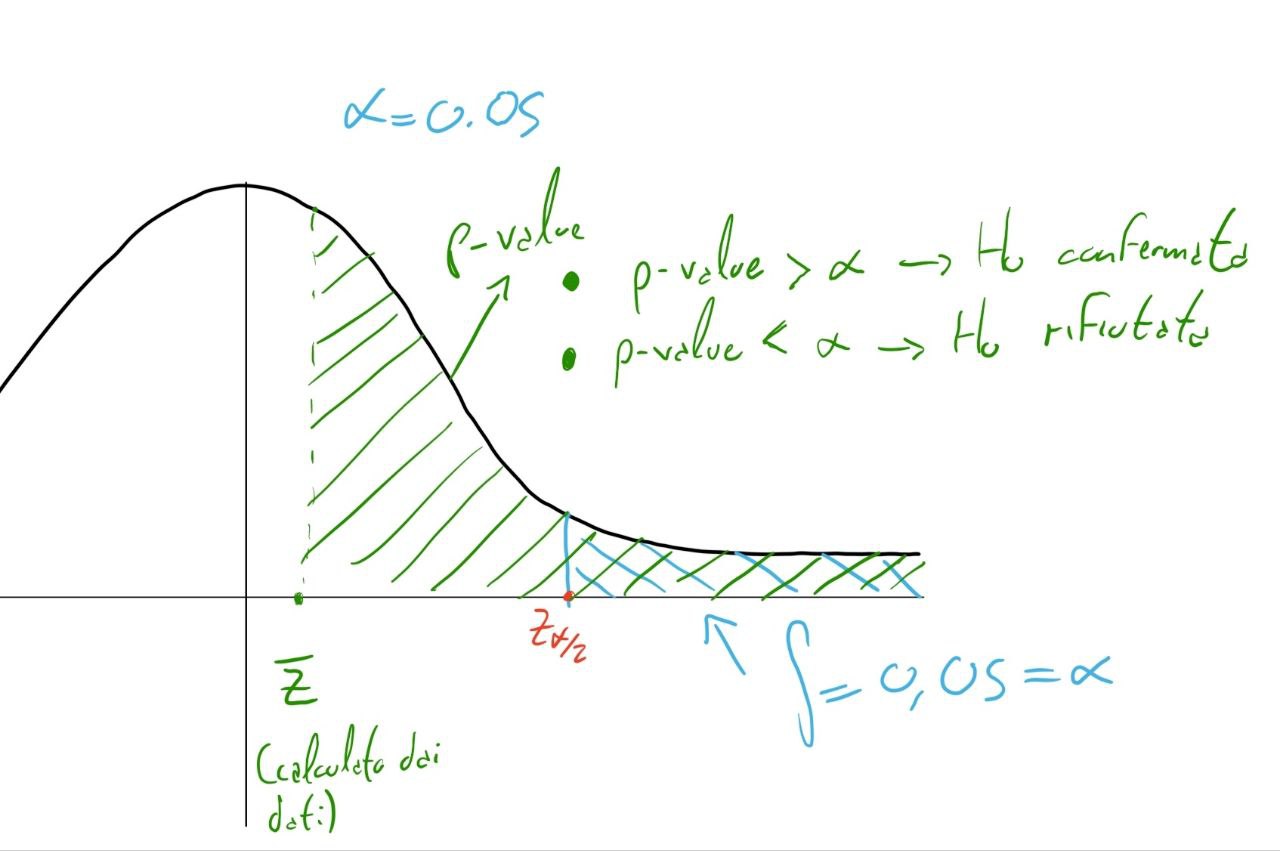 α=0.05
p-value
• p-value > α → H₀ confermata
• p-value < α → H₀ rifiutata
z α/2
∫ = 0,05 = α
z̅
(calcolato dai
dati)